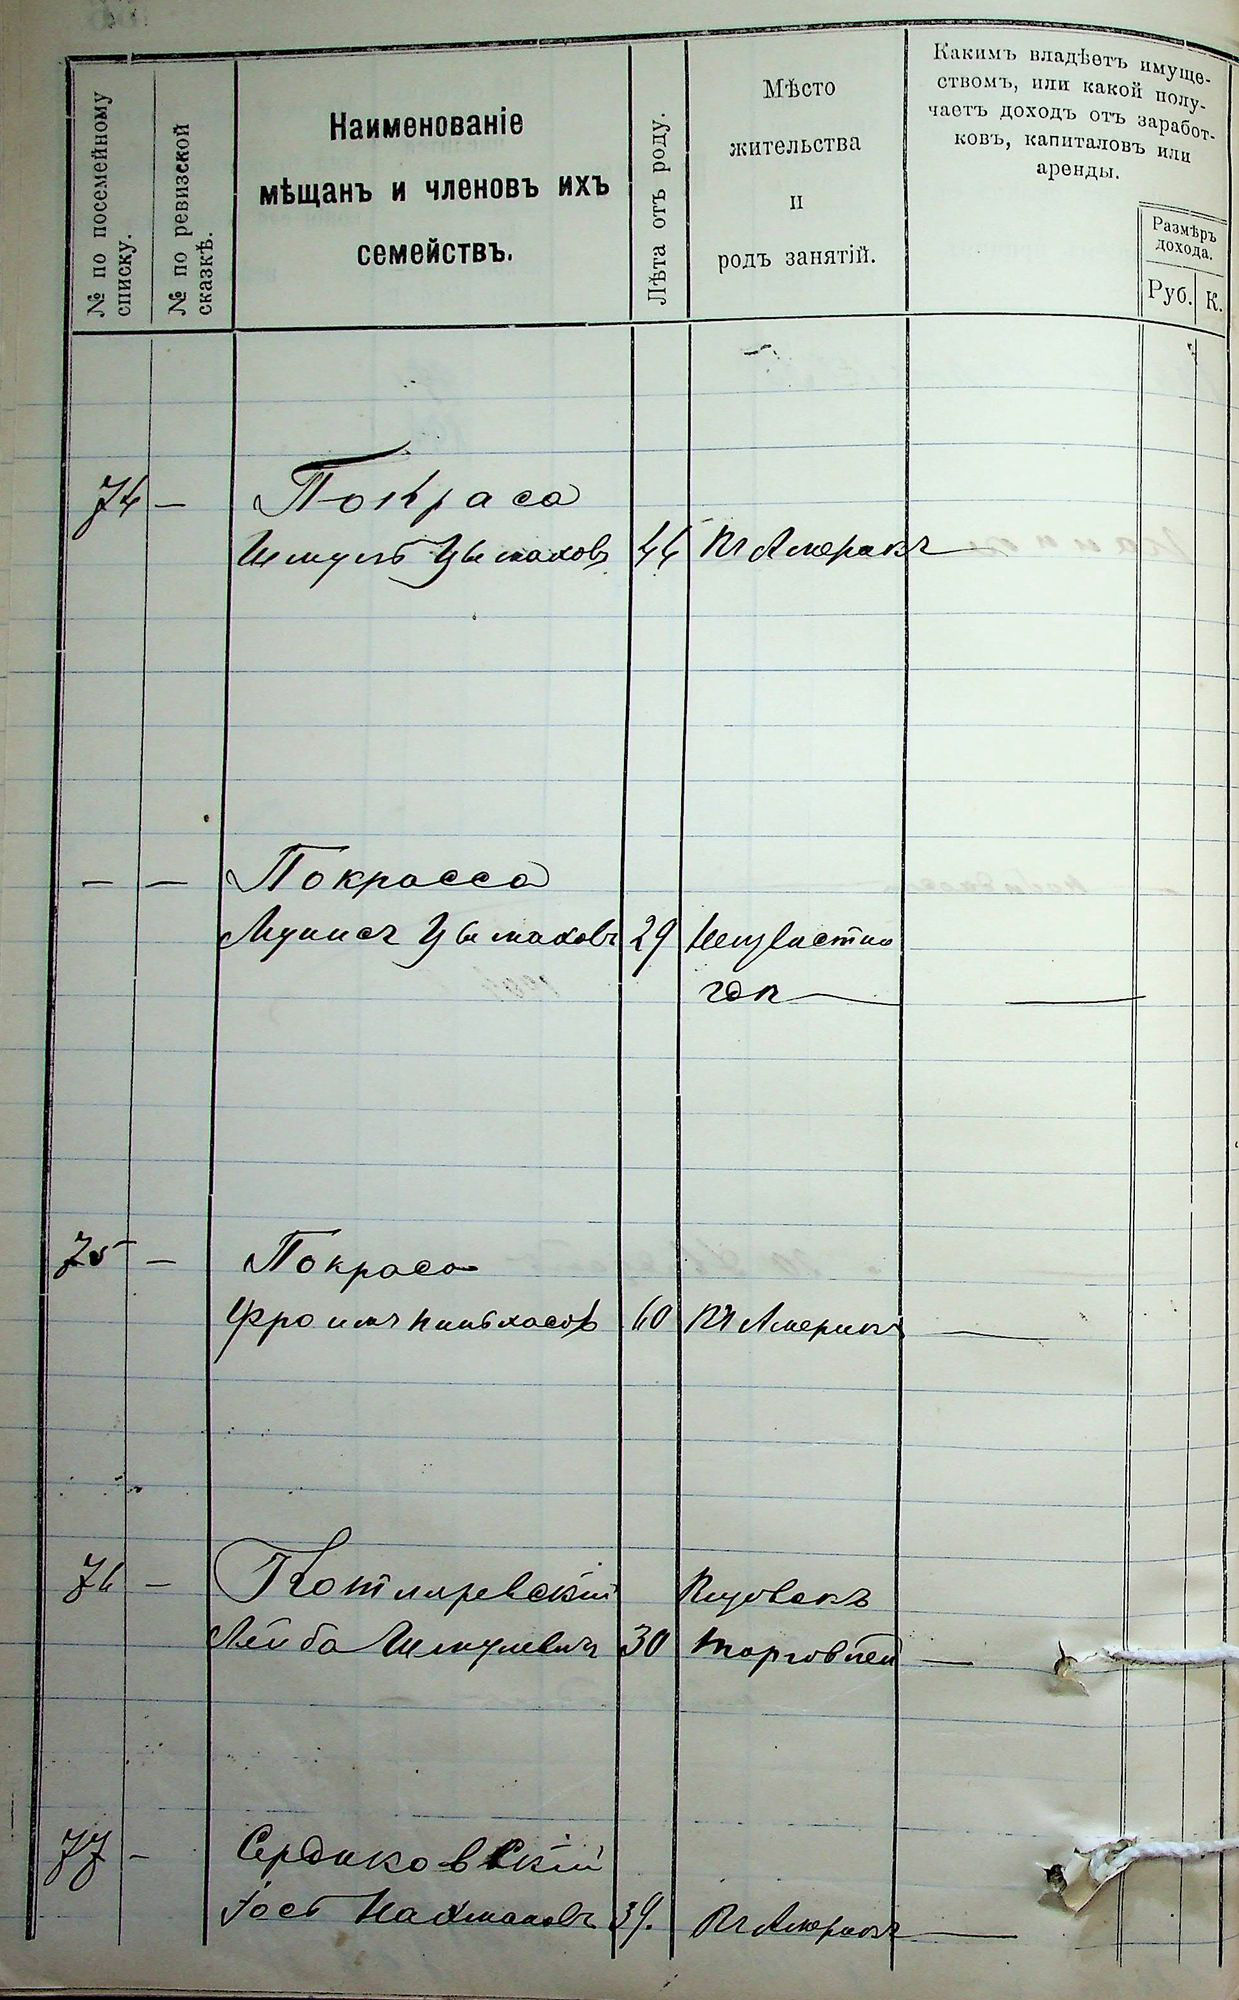 № по посемейному
списку.
№ по ревизской
сказкѣ.
Наименованіе
мѣщанъ и членовъ ихъ
семействъ.
Лѣта отъ роду.
Мѣсто
жительства
и
родъ занятій.
Какимъ владѣетъ имуще-
ствомъ, или какой полу-
чаетъ доходъ отъ заработ-
ковъ, капиталовъ или
аренды.
Размѣръ
дохода.
Руб. К.
74 — Покраса
Шмуль 44 въ Америкѣ —
— — Покрасса
29 Неизвѣстно
гдѣ — —
75 — Покраса
Фроимъ Пинхасовъ 60 въ Америкѣ —
76 — Котляревскій
Лейба Шмулевичъ 30 торговлей —
77 — Сердиковскій
Іось Нахмановъ 39. въ Америкѣ —